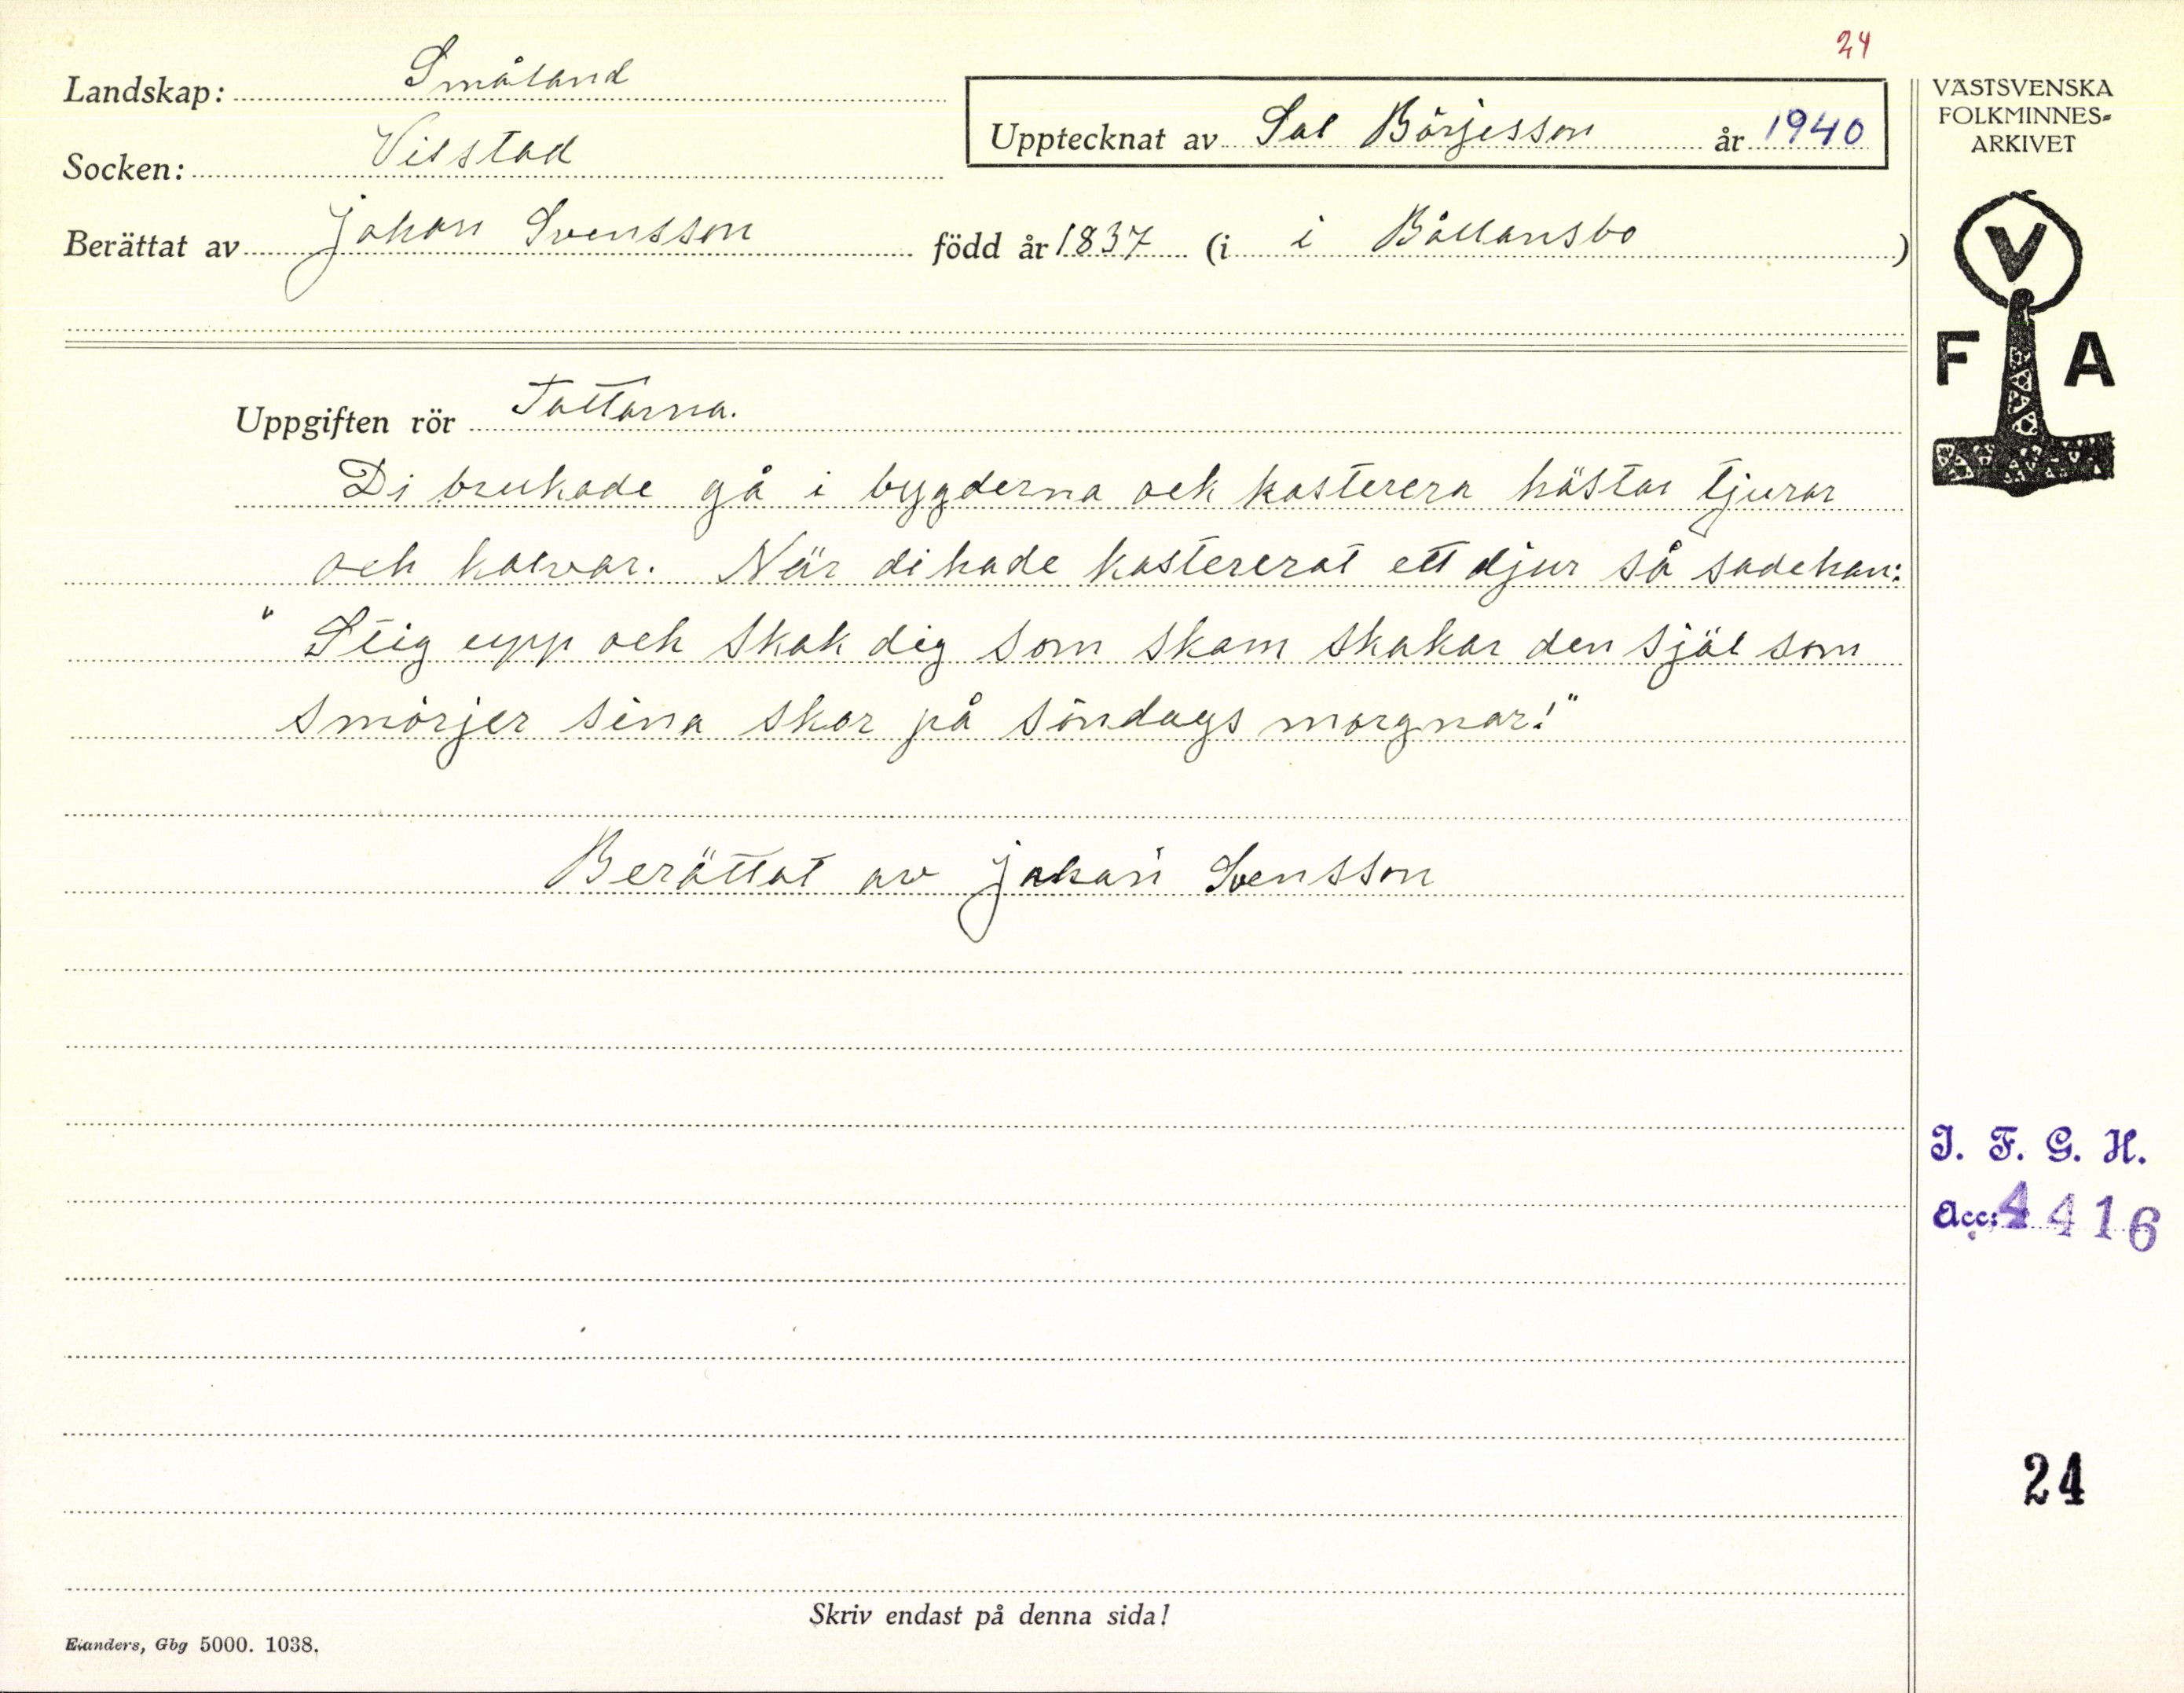 24
Landskap: Småland
Socken: Vilstad
Upptecknat av Sal Börjesson år 1940
Berättat av Johan Svensson född år 1837 (i i Bållansbo )
VÄSTSVENSKA
FOLKMINNES-
ARKIVET
V
F A
Uppgiften rör Tattarna.
Di brukade gå i bygderna och kasterera hästar tjurar
och kalvar. När di hade kastererat ett djur så sade han:
" Stig upp och skak dig som skam skakar den själ som
smörjer sina skor på söndags morgnar!"
Berättat av Johan Svensson
I. F. G. H.
Acc: 4416
24
Skriv endast på denna sida!
Elanders, Gbg 5000. 1038.